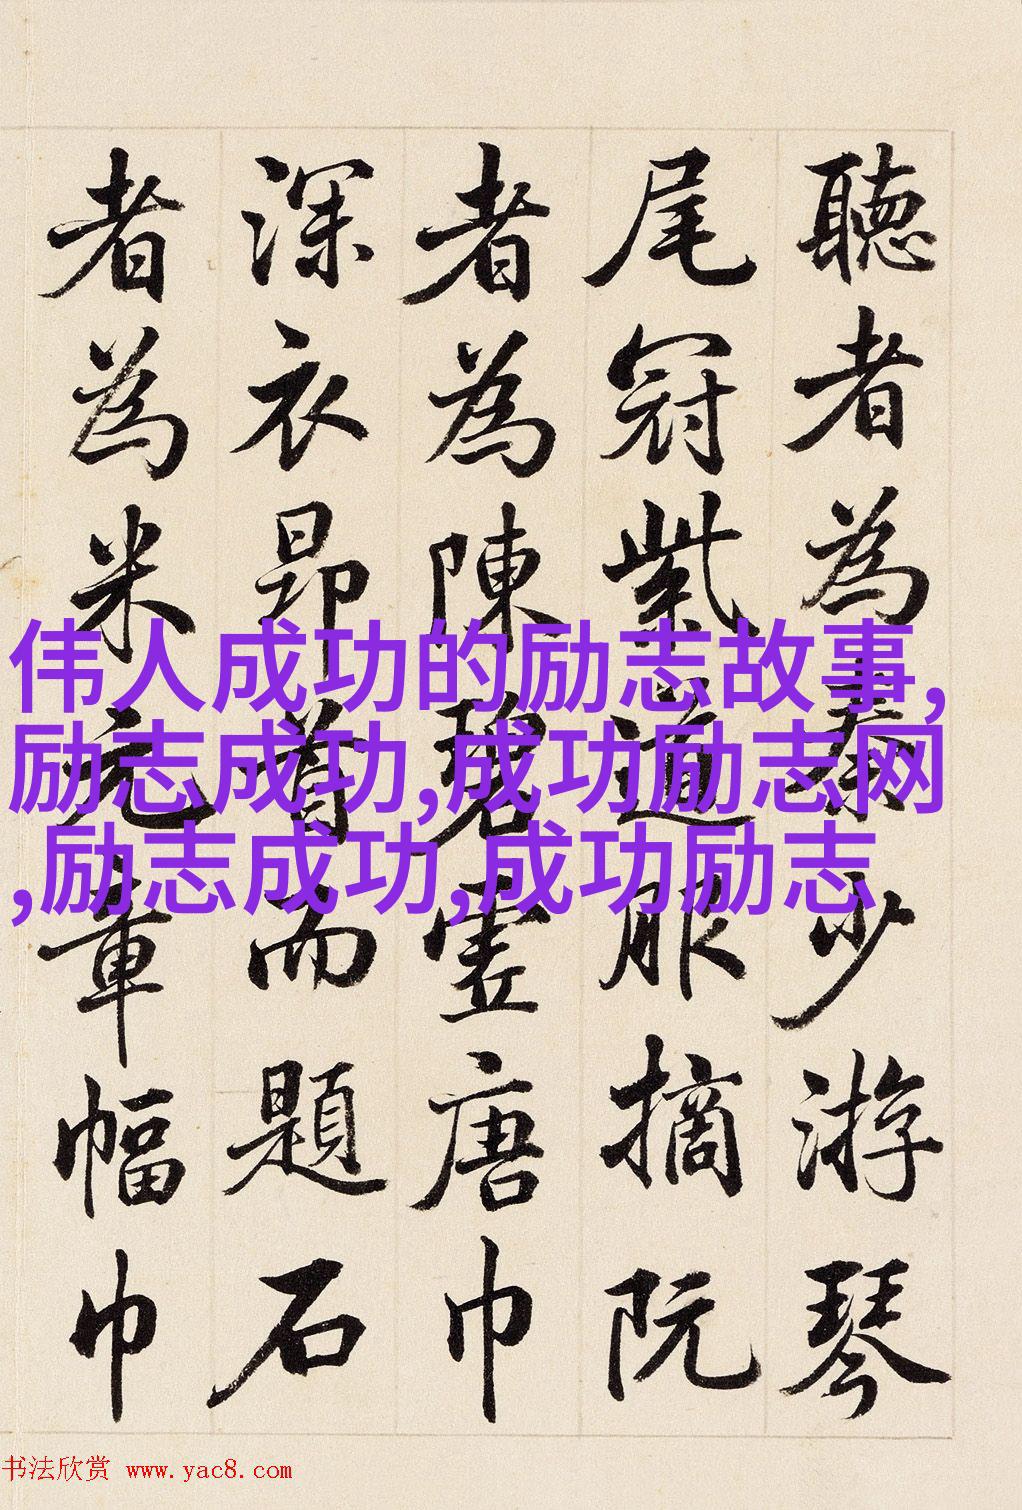 聽者為秦少游琴
尾冠紫道服摘阮
者為陳碧虛唐巾
深衣昂首而題石
者為米元章幅巾
伟人成功的励志故事,
励志成功,成功励志网
,励志成功,成功励志
书法欣赏 www.yac8.com